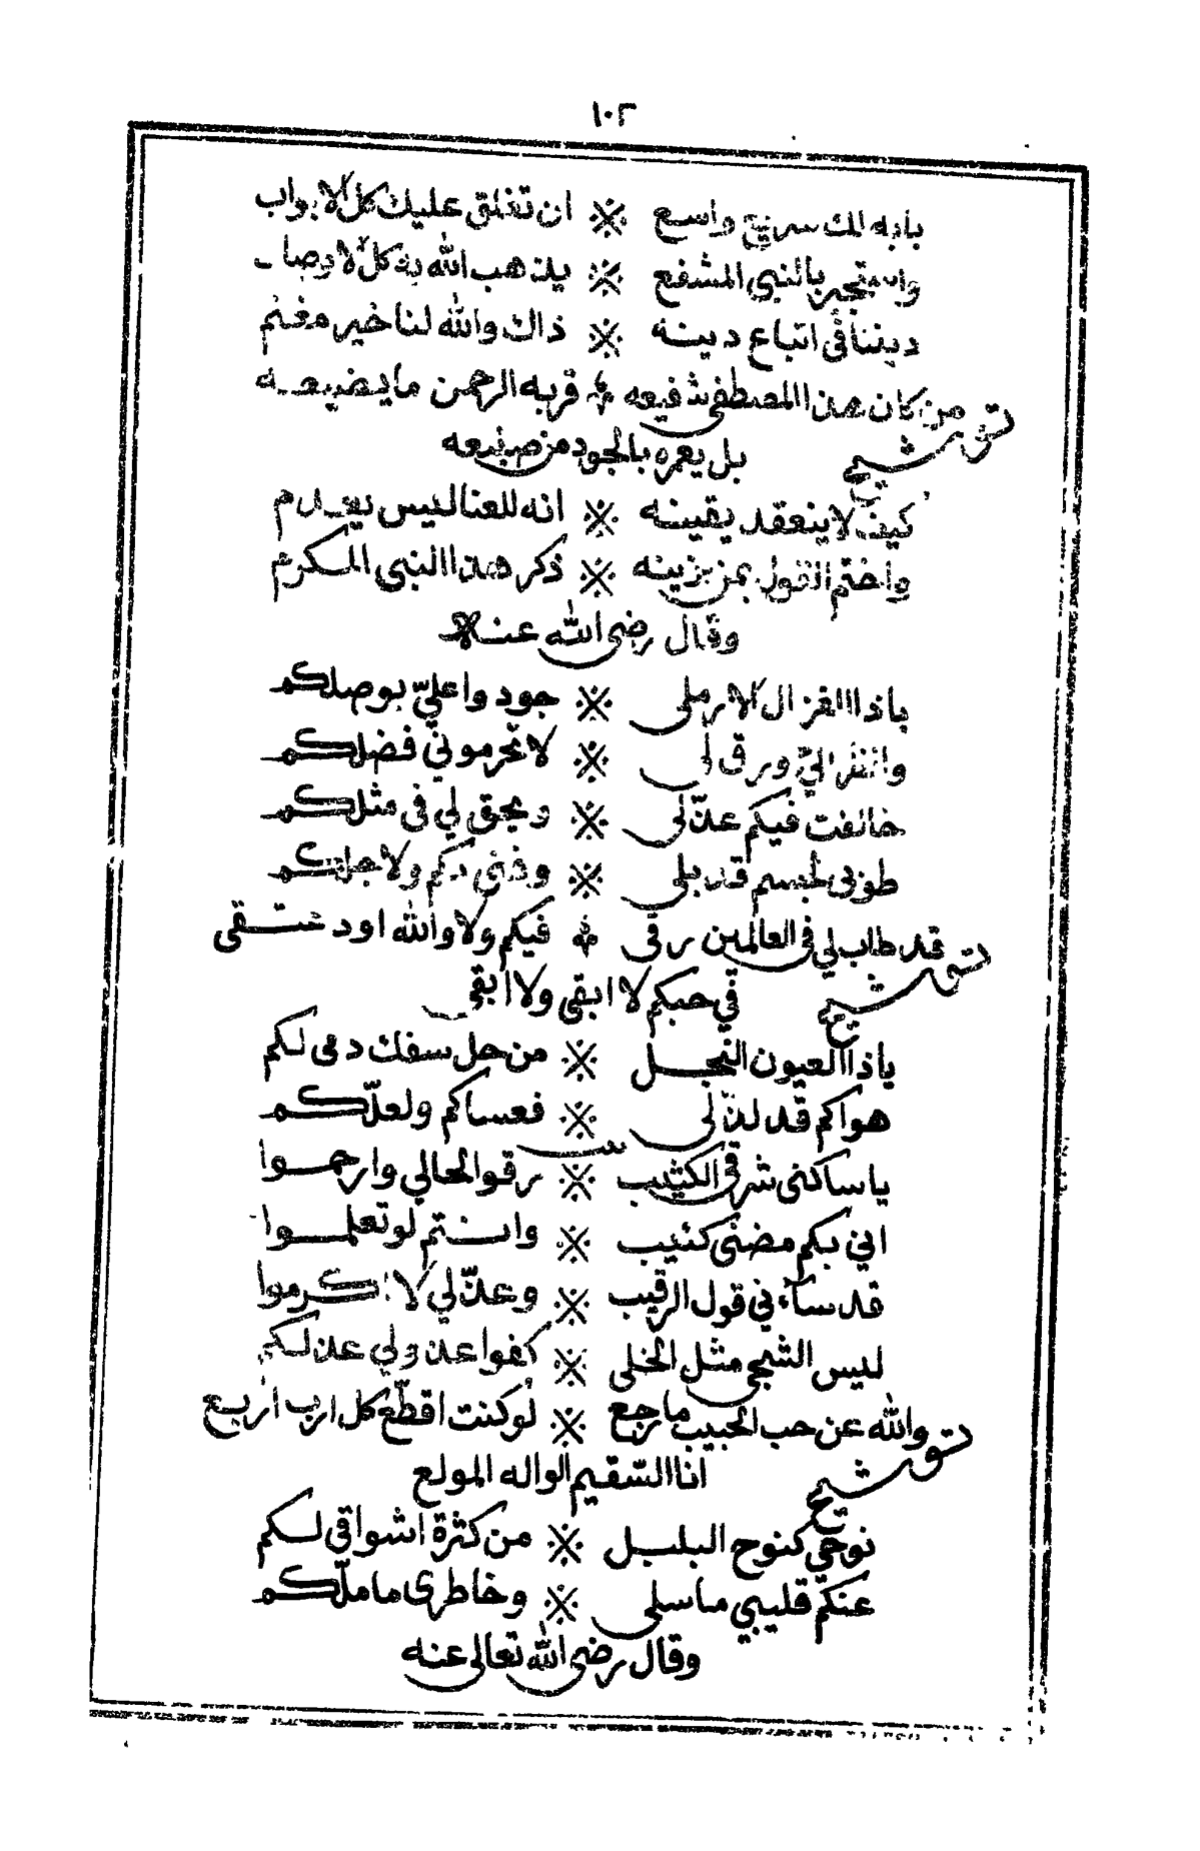 ١٠٢
بابه لك سريع واسع ※ ان تغلق عليك كل الابواب
واستجير بالنبى المشفع ※ يذهب الله به كل الاوصاب
ديننا فى اتباع دينه ※ ذاك والله لنا خير مغنم
توشيح من كان هذا المصطفى شفيعه ※ قربه الرحمن ما يضيعه
بل يعمره بالجود من صنيعه
كيف لا ينعقد يقينه ※ انه للعنا ليس يعدم
واختم القول بمن يزينه ※ ذكر هذا النبى المكرم
وقال رضى الله عنه
ياذا الغزال الارملى ※ جودوا علىّ بوصلكم
وانظر الىّ ورق لى ※ لا تحرمونى فضلكم
خالفت فيكم عذّلى ※ ويحق لي فى مثلكم
طوبى لجسم قد بلى ※ وفنى بكم ولاجلكم
توشيح قد طاب لي فى العالمين رقى ※ فيكم ولا والله اود عتقى
في حبكم لا ابقى ولا ابقى
ياذا العيون النجل ※ من حل سفك دمى لكم
هواكم قد لذّ لى ※ فعساكم ولعلّكم
يا ساكنى شرقى الكثيب ※ رقوا لحالي وارحموا
اني بكم مضنى كئيب ※ وانتم لو تعلموا
قد ساءني قول الرقيب ※ وعذّلي لا اكرموا
ليس الشجى مثل الخلى ※ كفوا عذولي عذلكم
توشيح والله عن حب الحبيب ما رجع ※ لو كنت اقطّع كل ارب اربع
انا السّقيم الواله المولع
نوحي كنوح البلبل ※ من كثرة اشواقي لكم
عنكم قليبي ما سلى ※ وخاطرى ما ملّكم
وقال رضى الله تعالى عنه